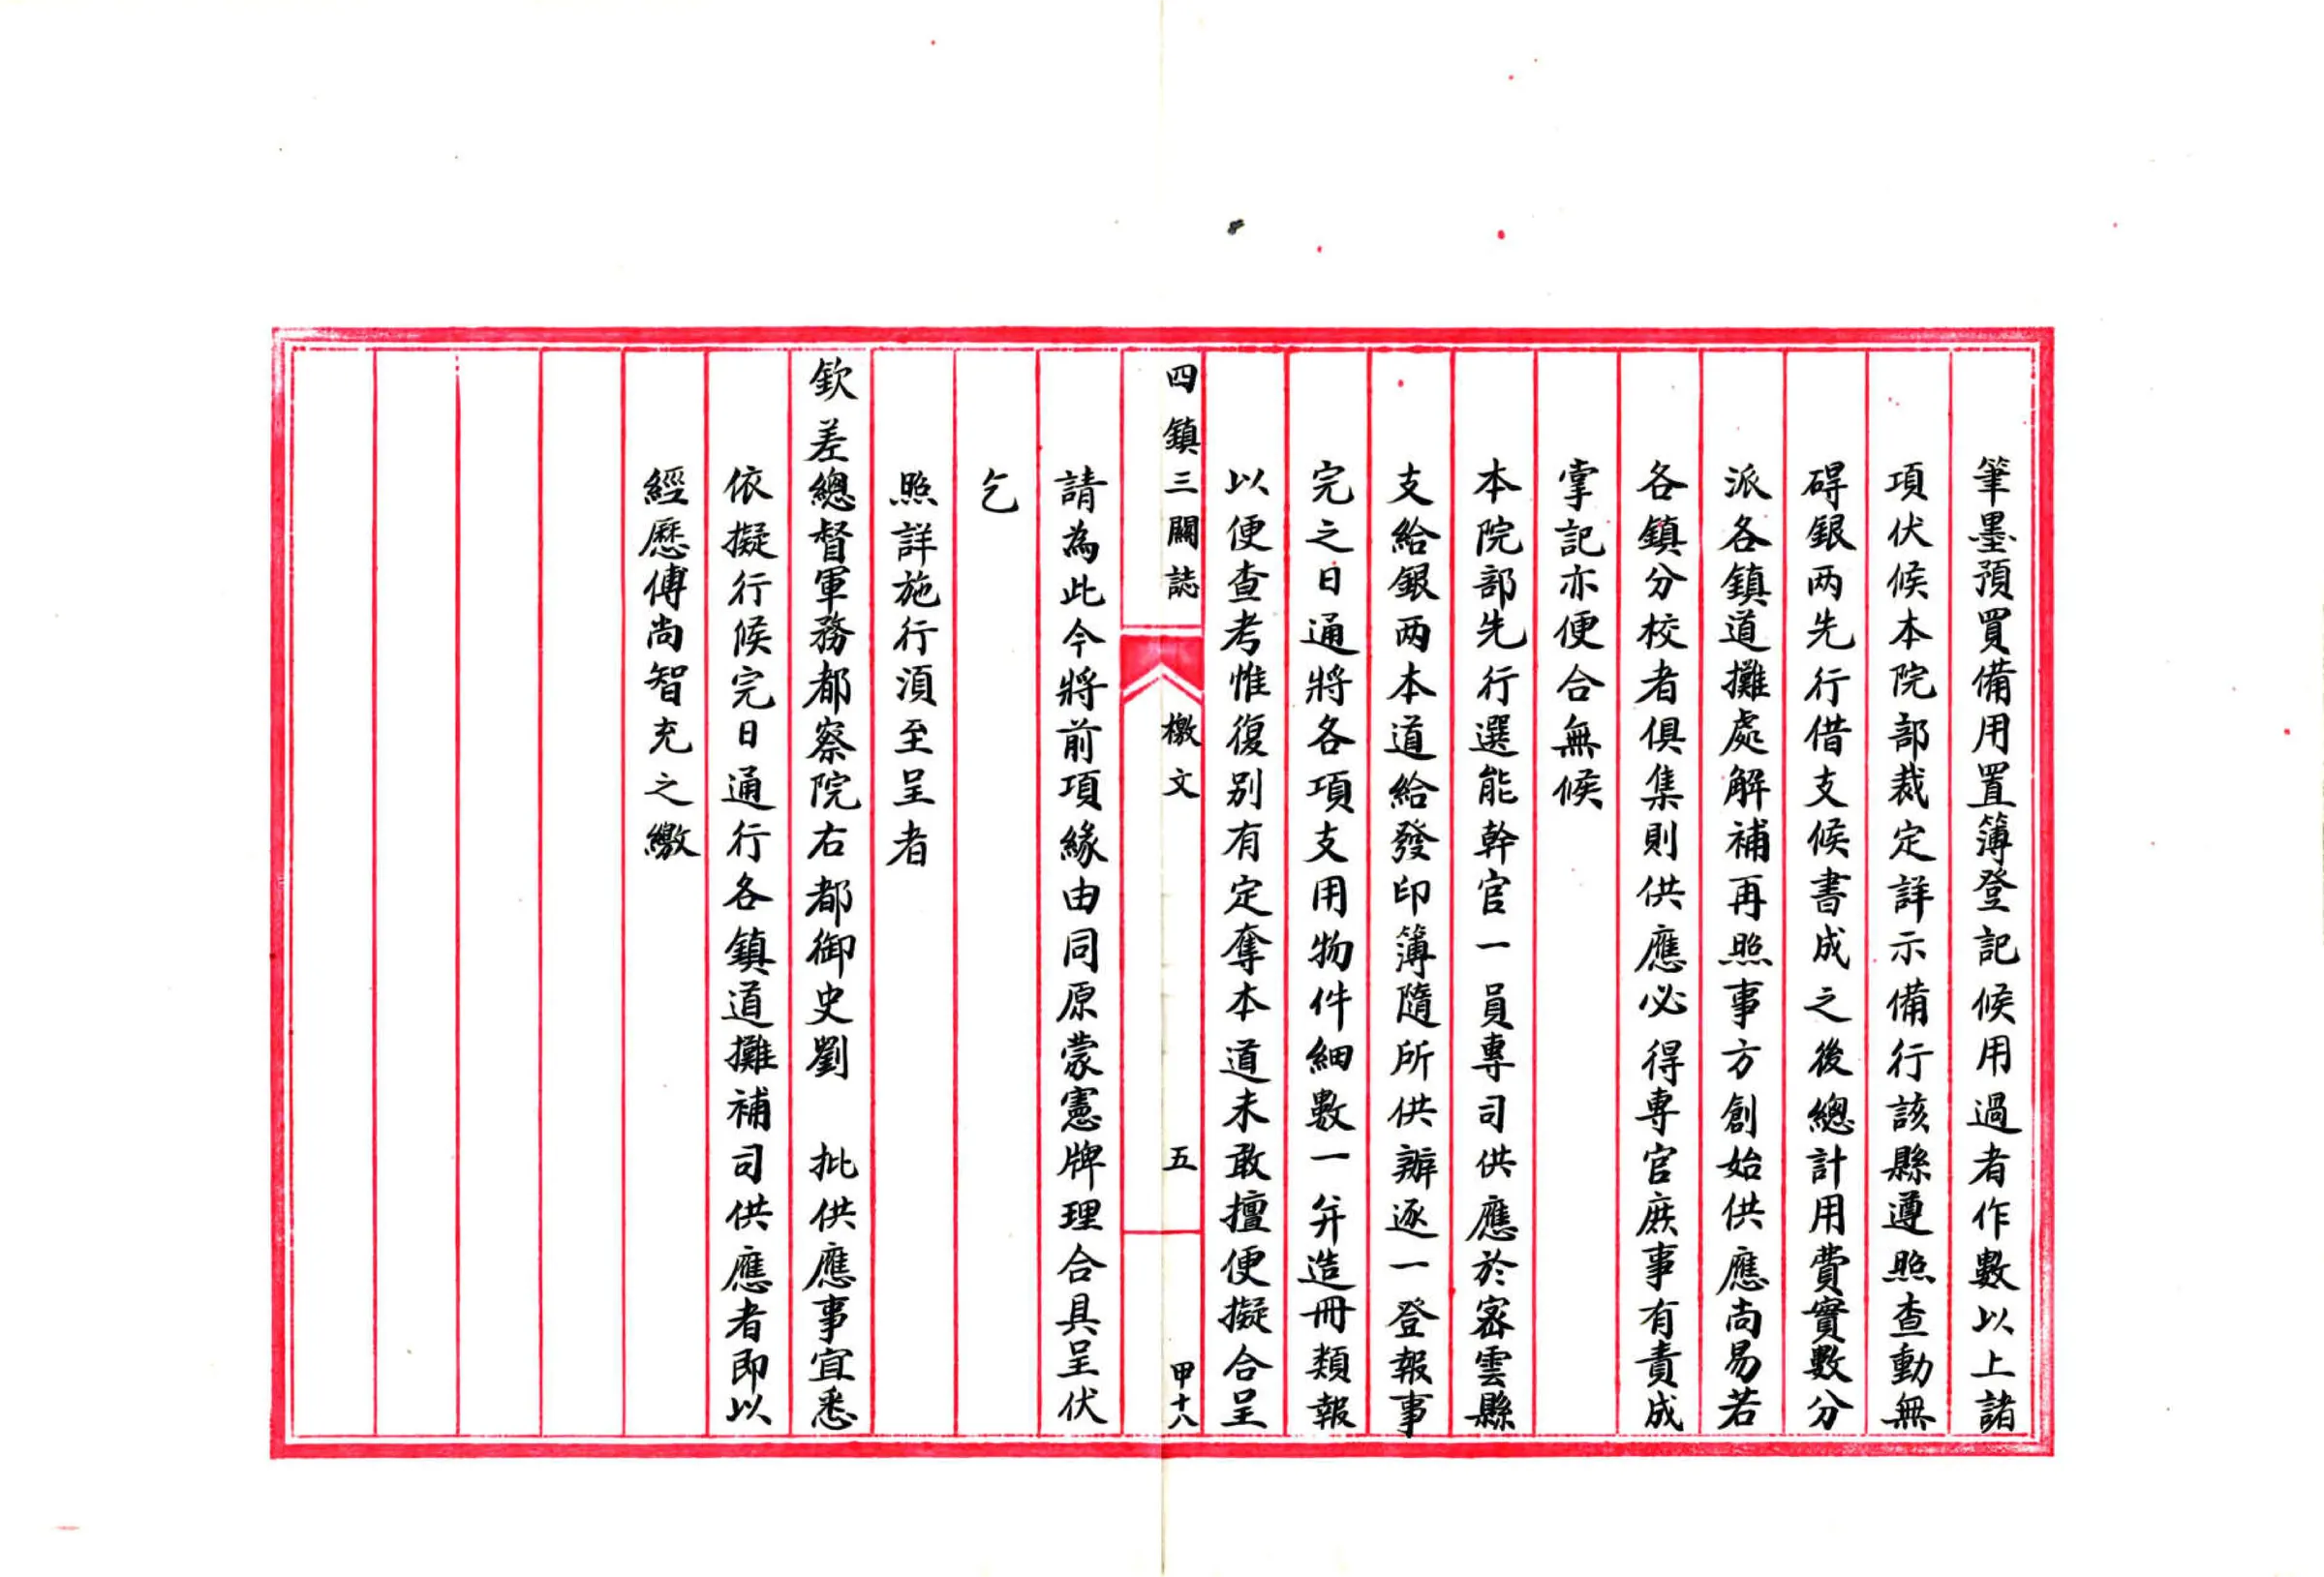 筆墨預買備用置簿登記候用過者作數以上諸
項伏候本院部裁定詳示備行該縣遵照查動無
碍銀两先行借支候書成之後總計用費實數分
派各鎮道攤處解補再照事方創始供應尚易若
各鎮分校者俱集則供應必得專官庶事有責成
掌記亦便合無候
本院部先行選能幹官一員專司供應於密雲縣
支給銀两本道給發印簿隨所供辦逐一登報事
完之日通將各項支用物件細數一并造冊類報
以便查考惟復别有定奪本道未敢擅便擬合呈
四鎮三關誌 檄文 五 甲十八
請為此今將前項緣由同原蒙憲牌理合具呈伏
乞
照詳施行湏至呈者
欽差總督軍務都察院右都御史劉 批供應事宜悉
依擬行候完日通行各鎮道攤補司供應者即以
經歷傅尚智充之繳